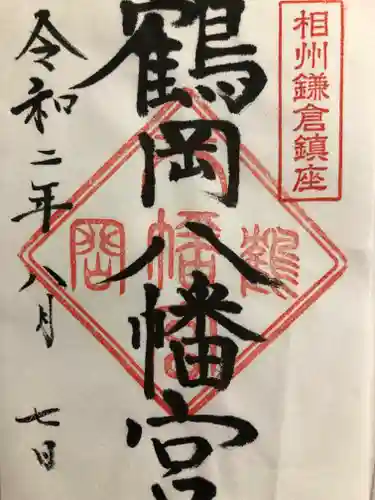 相州鎌倉鎮座
鶴岡八幡宮
令和二年八月七日